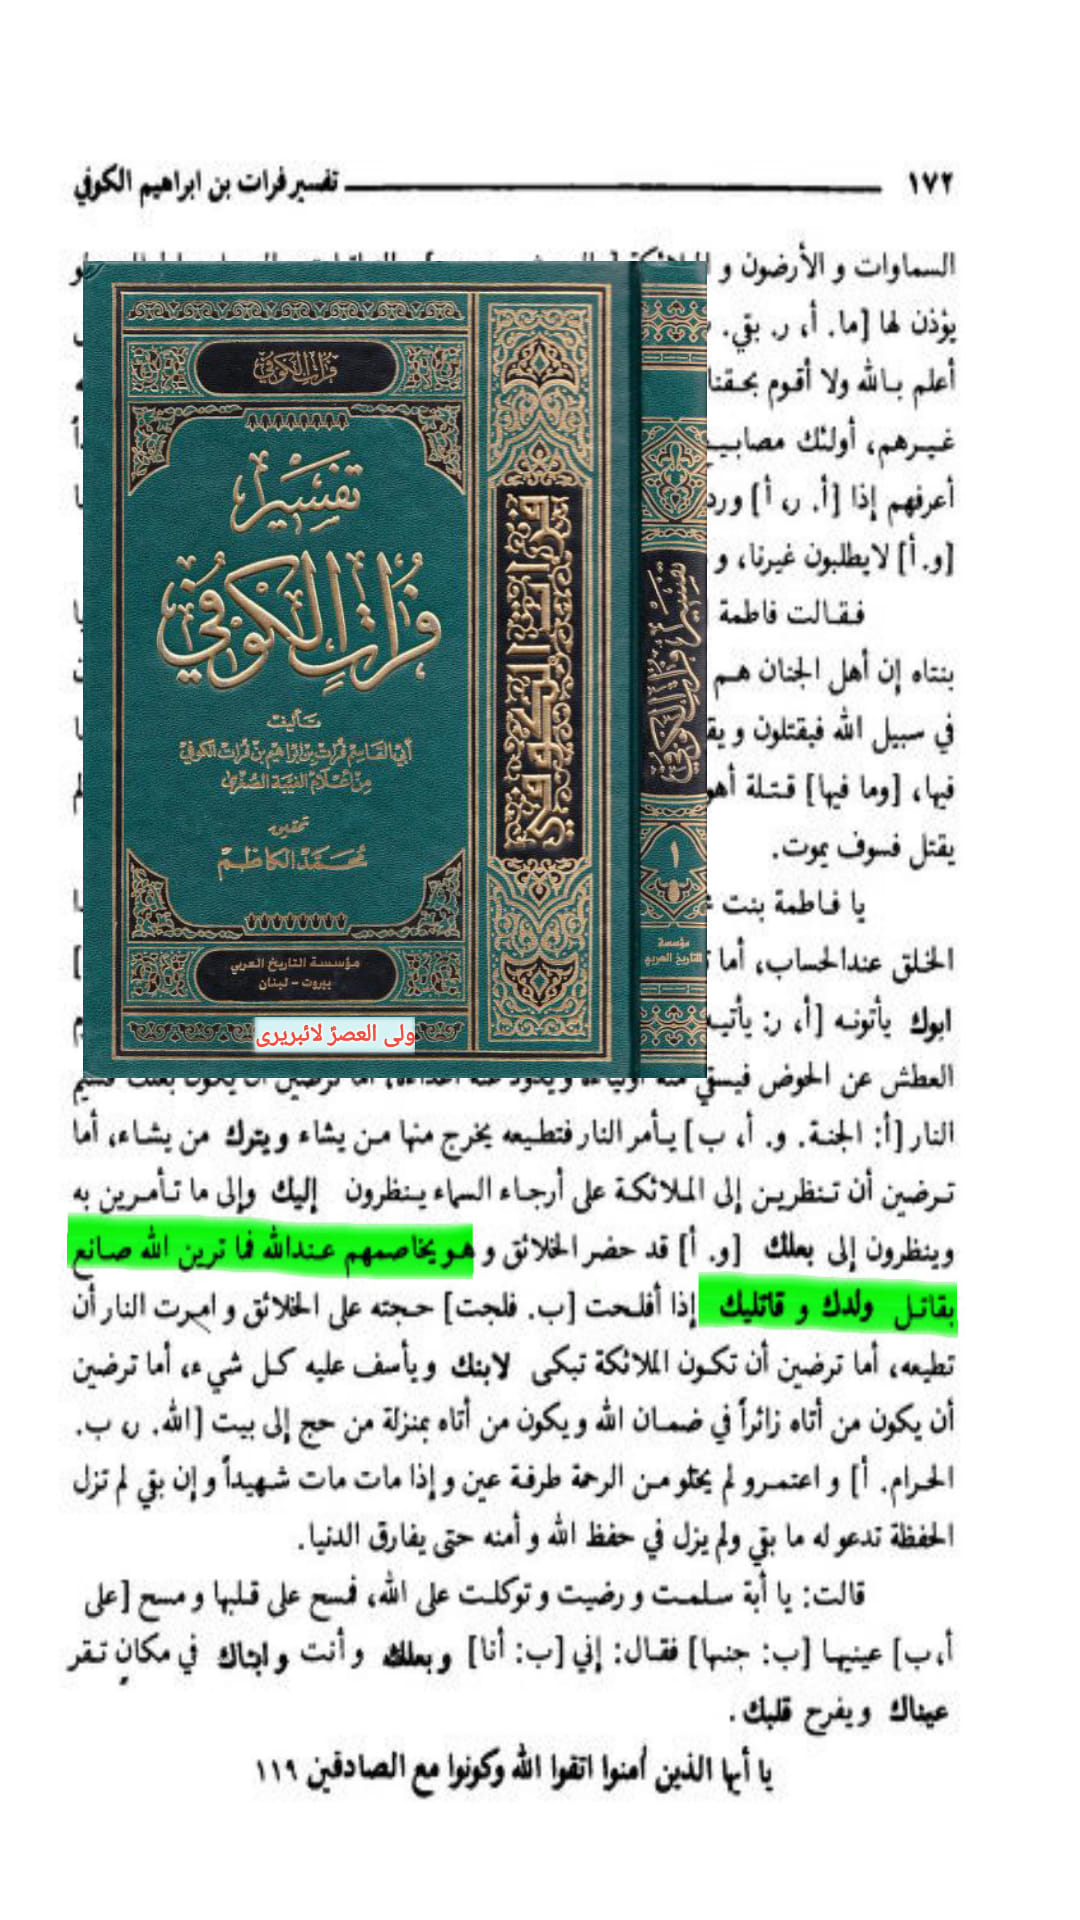 ١٧٢ تفسير فرات بن ابراهيم الكوفي
السماوات و الأرضون و
يؤذن لها [ما. أ، ر. بقي.
أعلم بـالله ولا أقـوم بحـقنا
غـيـرهم، أولـئك مصابـيـ
أعرفهم إذا [أ. ر، أ] ورد
[و. أ] لايطلبون غيرنا، و
فـقـالـت فاطمة
بنتاه إن أهل الجنان هـم
في سبيل الله فيقتلون و يقـ
فيها، [وما فيها] قـتـلة أهو
يقتل فسوف يموت.
يا فـاطمة بنت
الخـلق عندالحساب، أما
ابوك يأتونـه [أ، ر: يأتيـه
العطش عن الحوض فيسقي
النار [أ: الجنـة. و. أ، ب] يـأمر النار فتطـيعه يخرج منها مـن يشاء و يترك من يشـاء، أما
تـرضين أن تـنظريـن إلى المـلائكـة على أرجـاء السماء يـنظرون إليك وإلى ما تـأمـرين به
وينظرون إلى بعلك [و. أ] قد حضر الخلائق و هـو يخاصمهم عـندالله فما ترين الله صـانع
بقاتـل ولدك و قاتليك إذا أفلـحت [ب. فلجت] حـجته على الخلائق و امـرت النار أن
تطيعه، أما ترضين أن تكـون الملائكة تبكى لابنك و يأسف عليه كـل شيء، أما ترضين
أن يكون من أتاه زائراً في ضمـان الله و يكون من أتاه بمنزلة من حج إلى بيت [الله. ر، ب.
الحـرام. أ] و اعتمـرو لم يخلو مـن الرحمة طرفـة عين و إذا مات مات شـهيداً و إن بقي لم تزل
الحفظة تدعو له ما بقي ولم يزل في حفظ الله و أمنه حتى يفارق الدنيا.
قالت: يا أبة سـلمـت و رضيت و توكلـت على الله، فـسح على قـلبها و مسح [على
أ، ب] عينيها [ب: جنبها] فقـال: إني [ب: أنا] وبعلك و أنت و ابناك في مكانٍ تـقر
عيناك ويفرح قلبك.
يا أيها الذين آمنوا اتقوا الله وكونوا مع الصادقين ١١٩
فرات الكوفي
تفسير
فرات الكوفي
تأليف
أبي القاسم فرات بن إبراهيم بن فرات الكوفي
من أعلام الغيبة الصغرى
تحقيق
محمد الكاظم
مؤسسة التاريخ العربي
بيروت - لبنان
ولی العصرؑ لائبریری
فرات الكوفي
تفسير فرات الكوفي
١
مؤسسة
التاريخ العربي